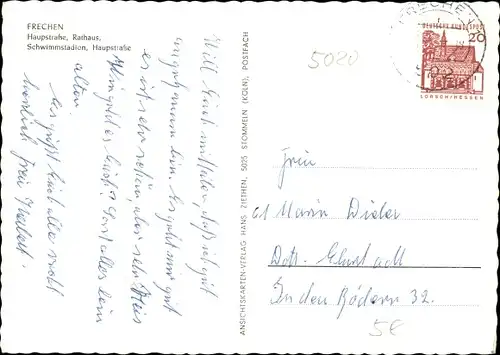 FRECHEN
Haupstraße, Rathaus,
Schwimmstadion, Haupstraße
Will Euch mitteilen, daß ich gut
angekommen bin. Es geht mir gut
es ist sehr schön, aber sehr heiß
Wie geht es Euch? Sonst alles beim
alten.
Es grüßt Euch alle recht
herzlich
ANSICHTSKARTEN-VERLAG HANS ZIETHEN, 5025 STOMMELN (KÖLN), POSTFACH
5020
FRECHEN
DEUTSCHE BUNDESPOST
20
LORSCH/HESSEN
Maria
In den Bödern 32.
5€